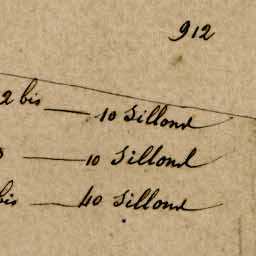 912
2 bis — 10 Sillond
— 10 Sillond
bis — 40 Sillond